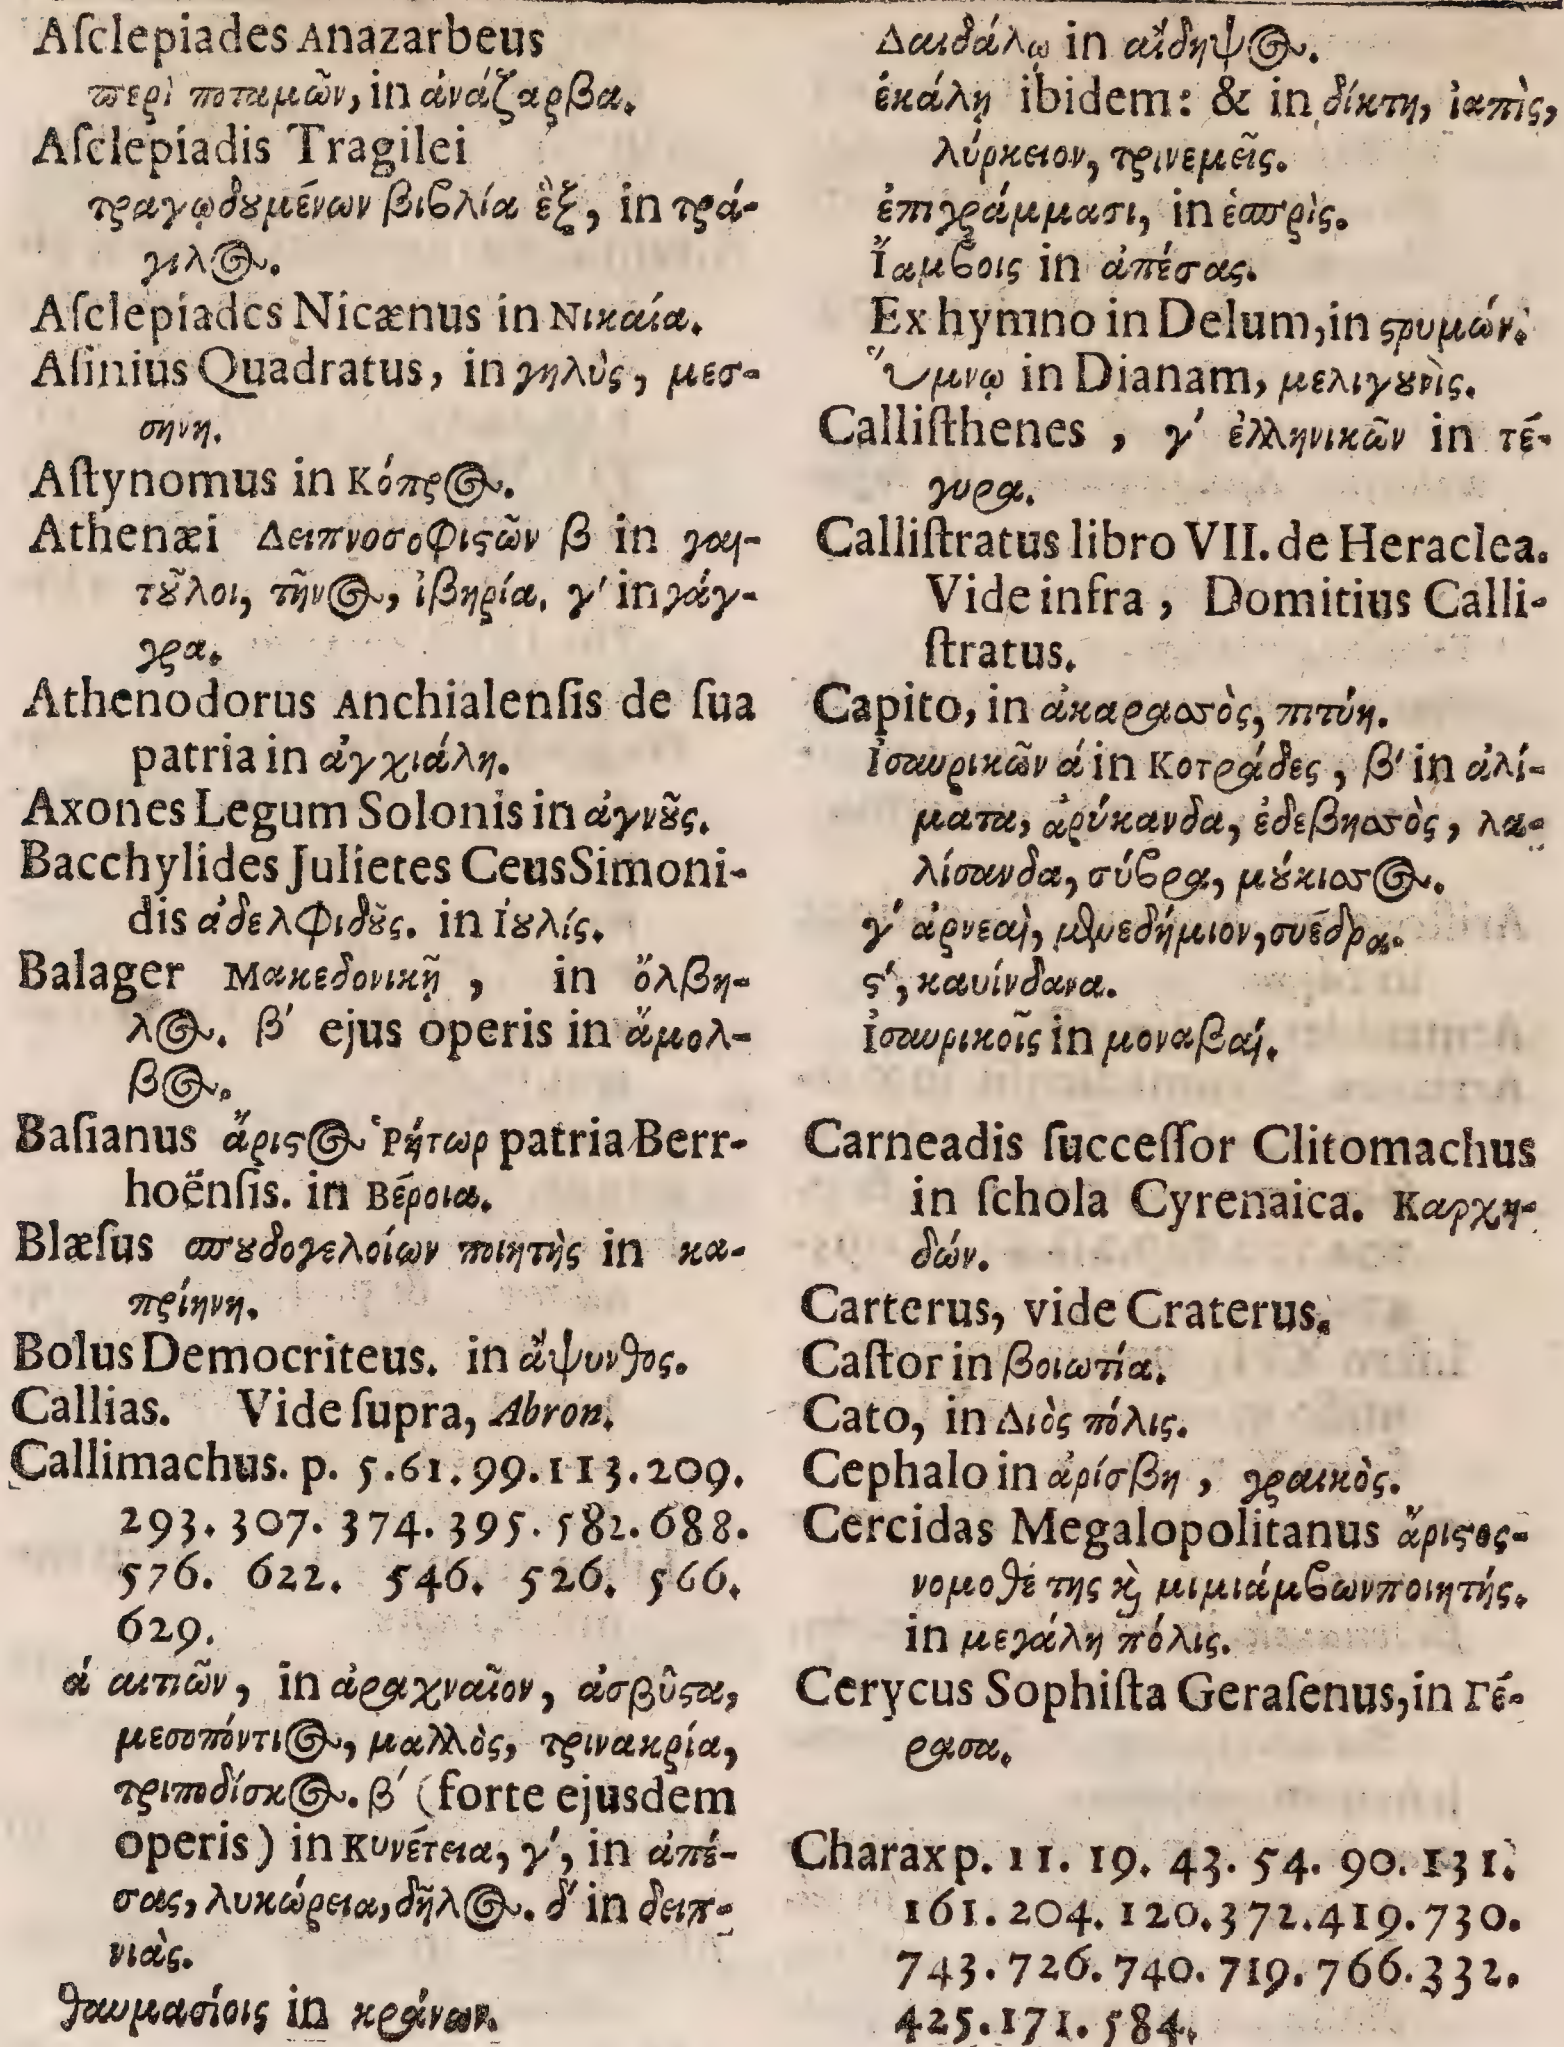 Aſclepiades Anazarbeus
περὶ ποταμῶν, in ἀνάζαρβα.
Aſclepiadis Tragilei
τραγῳδȣμένων βιβλία ἓξ, in τρά-
γιλος.
Aſclepiades Nicænus in Νικαία.
Aſinius Quadratus, in γηλὺς, μεσ-
σηνη.
Aſtynomus in Κόπρος.
Athenæi Δειπνοσοφιϛῶν β in γαι-
τȣ͂λοι, τῆνος, ἰβηρία. γ' in γάγ-
γρα.
Athenodorus Anchialenſis de ſua
patria in ἀγχιάλη.
Axones Legum Solonis in ἀγνȣ͂ς.
Bacchylides Julietes Ceus Simoni-
dis ἀδελφιδȣ͂ς. in ἰȣλίς.
Balager Μακεδονικῇ, in ὄλβη-
λος. β' ejus operis in ἄμολ-
βος.
Baſianus ἄριϛος Ῥήτωρ patria Berr-
hoënſis. in Βέροια.
Blæſus σπȣδογελοίων ποιητὴς in κα-
πρίηνη.
Bolus Democriteus. in ἄψυνθος.
Callias. Vide ſupra, Abron.
Callimachus. p. 5.61.99.113.209.
293. 307. 374. 395. 582. 688.
576. 622. 546. 526. 566.
629.
ά αιτιῶν, in ἀραχναῖον, ἀσβῦϛα,
μεσοπόντιος, μαλλὸς, τρινακρία,
τριποδίσκος. β' (forte ejusdem
operis) in Κυνέτεια, γ', in ἀπέ-
σας, λυκώρεια, δῆλος. δ' in δειπ-
νιὰς.
θαυμασίοις in κράνων.
Δαιδάλῳ in αἴδηψος.
ἑκάλῃ ibidem: & in δίκτη, ἰαπὶς,
λύρκειον, τρινεμεῖς.
ἐπιγράμμασι, in ἑσπρὶς.
Ἴαμβοις in ἀπέσας.
Ex hymno in Delum, in ϛρυμών.
Ὕμνῳ in Dianam, μελιγȣνὶς.
Calliſthenes, γ' ἑλληνικῶν in τέ-
γυρα.
Calliſtratus libro VII. de Heraclea.
Vide infra, Domitius Calli-
ſtratus.
Capito, in ἀκαρασσὸς, πιτύη.
ἰσαυρικῶν ά in Κοτράδες, β' in ἀλί-
ματα, ἀρύκανδα, ἐδεβησσὸς, λα-
λίσανδα, σύβρα, μȣ́κισσος.
γ' ἀρνεαὶ, μενεδήμιον, συέδρα.
ϛ', καυίνδανα.
ἰσαυρικοῖς in μοναβαί.
Carneadis ſucceſſor Clitomachus
in ſchola Cyrenaica. Καρχη-
δών.
Carterus, vide Craterus.
Caſtor in βοιωτία.
Cato, in Διὸς πόλις.
Cephalo in ἀρίσβη, γραικὸς.
Cercidas Megalopolitanus ἄριϛος-
νομοθέ της ϗ μιμιάμβωνποιητής.
in μεγάλη πόλις.
Cerycus Sophiſta Geraſenus, in Γέ-
ρασα.
Charax p. 11. 19. 43. 54. 90. 131.
161. 204. 120. 372. 419. 730.
743. 726. 740. 719. 766. 332.
425. 171. 584.